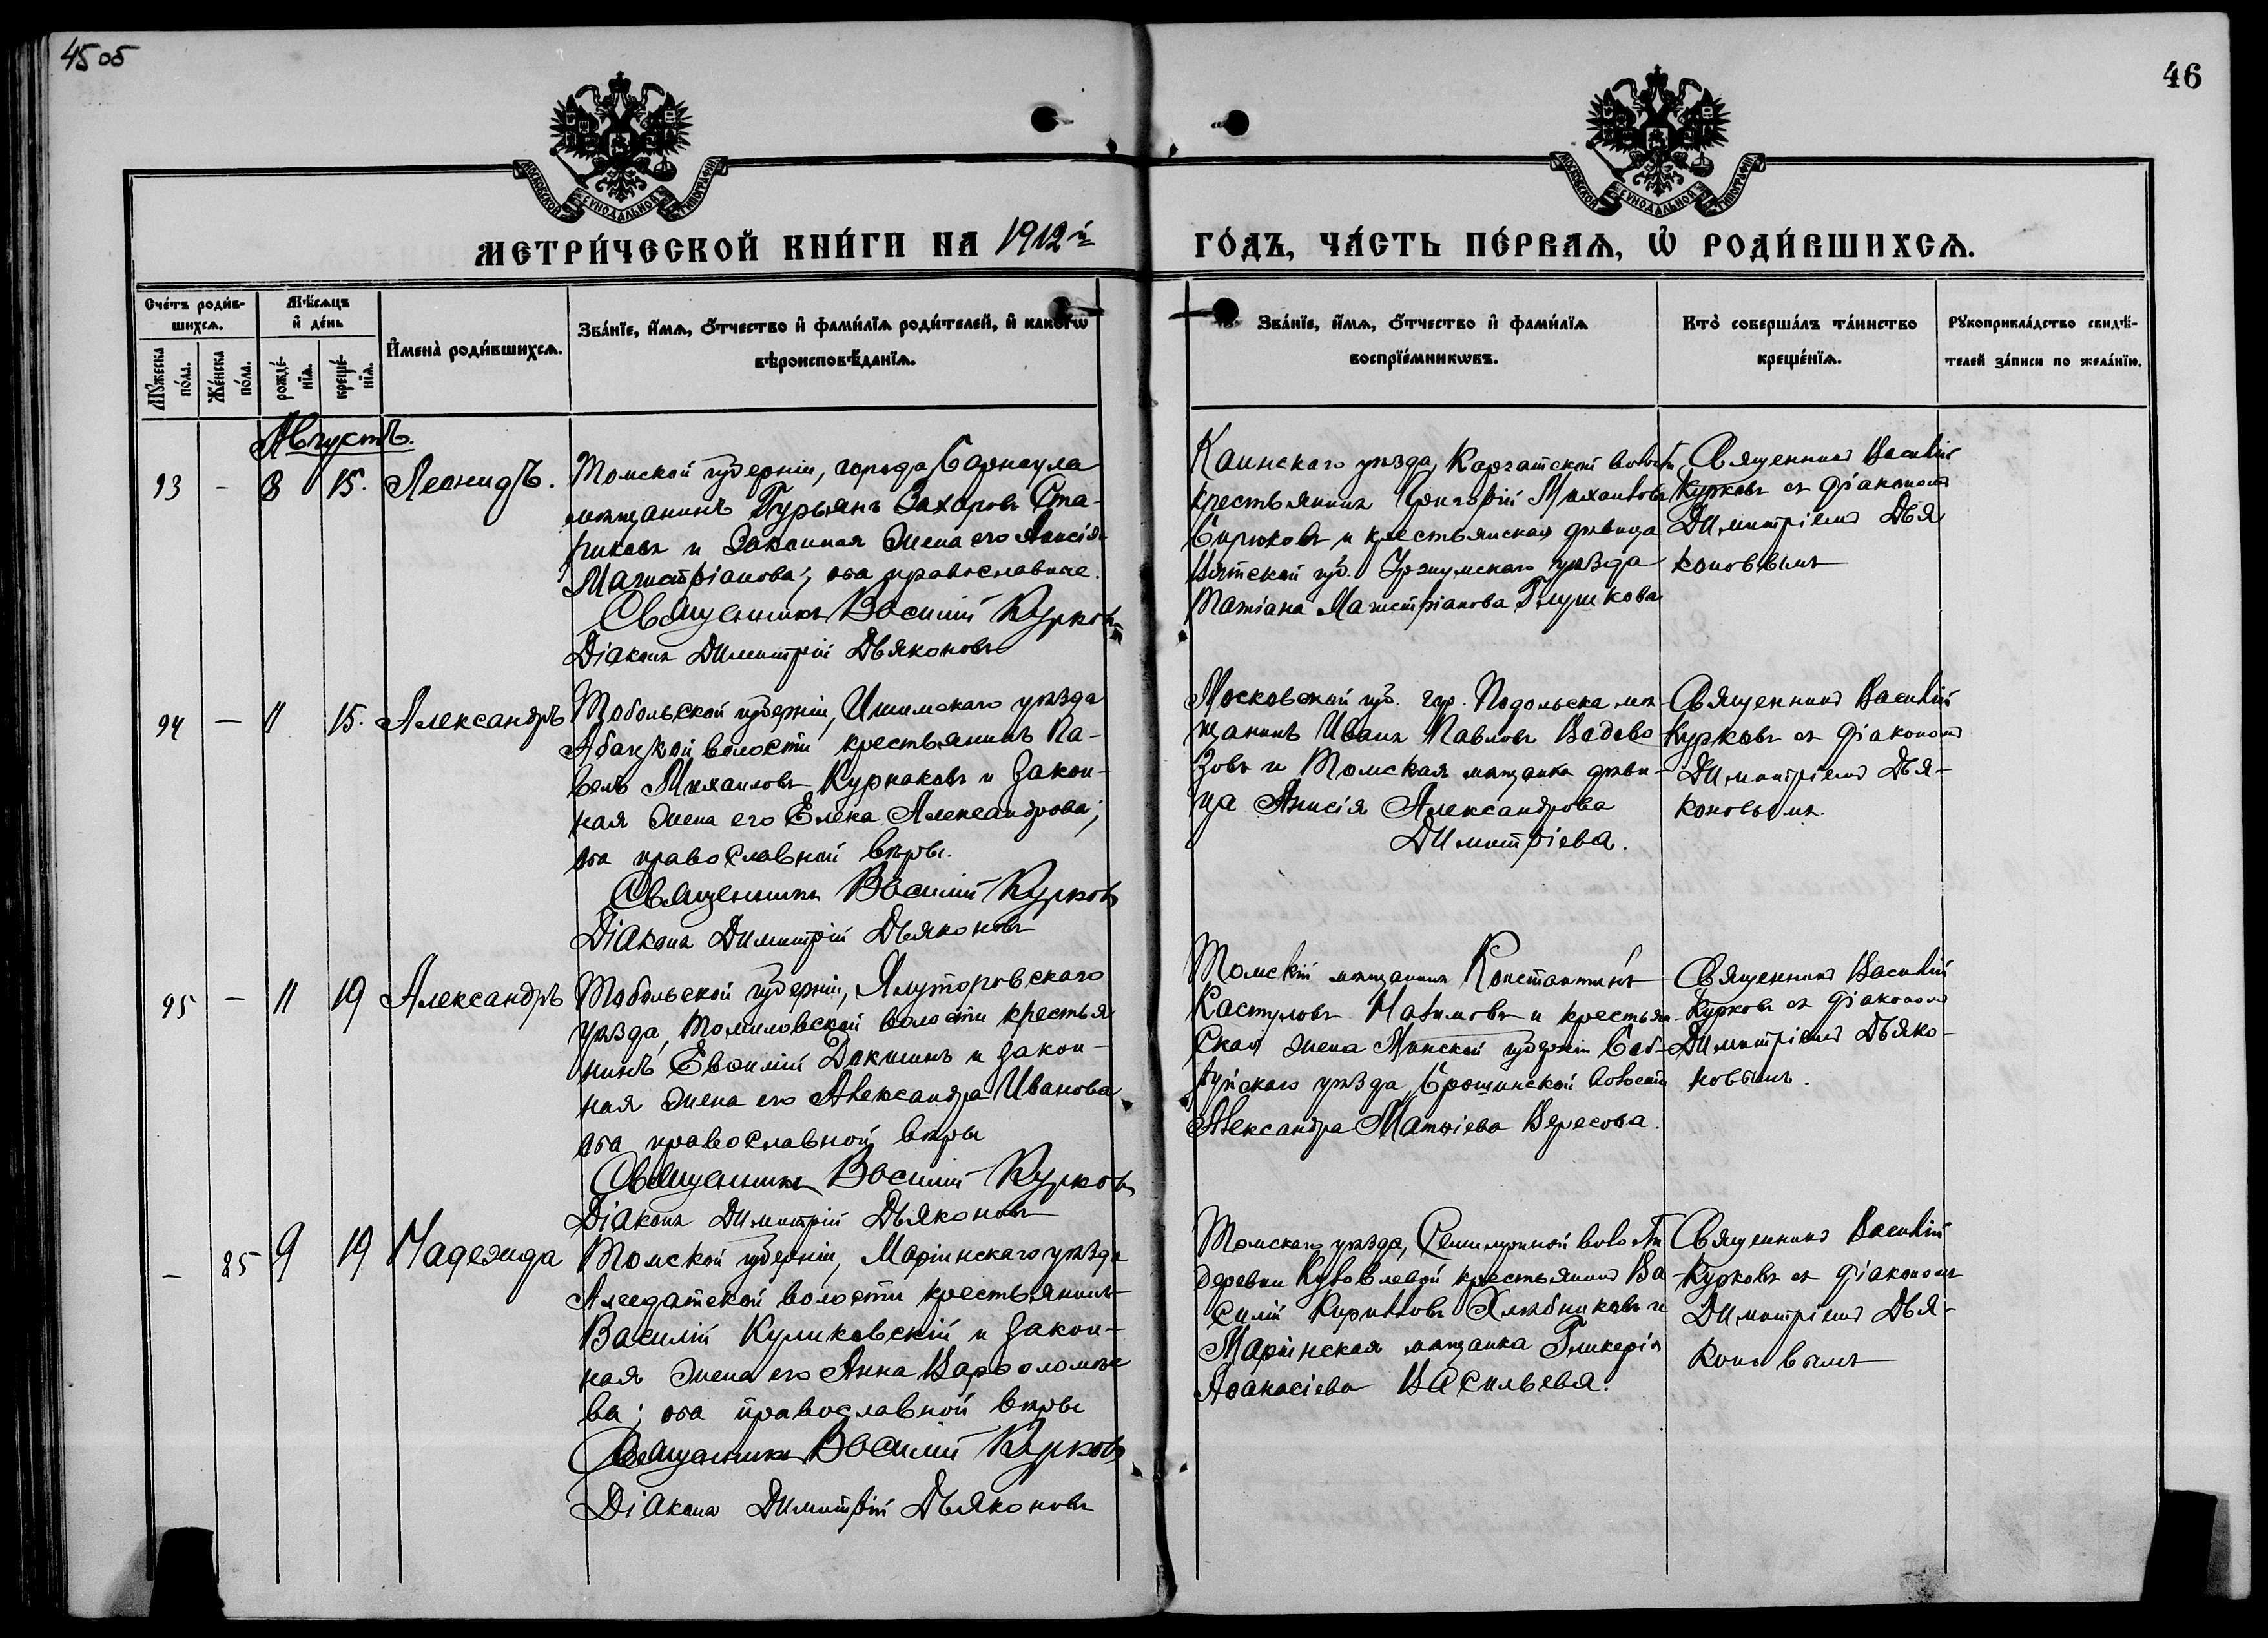 45 об
46
МОСКОВСКОЙ СѴНОДАЛЬНОЙ ТИПОГРАФІИ
МОСКОВСКОЙ СѴНОДАЛЬНОЙ ТИПОГРАФІИ
МЕТРИ́ЧЕСКОЙ КНИ́ГИ НА 1912й
ГО́ДЪ, ЧА́СТЬ ПЕ́РВАѦ, Ѡ҆ РОДИ́ВШИХСѦ.
Сче́тъ роди́в-
шихсѧ.
Мѣ́сѧцъ
и҆ де́нь
И҆мена̀ роди́вшихсѧ.
Зва́нїе, и҆́мѧ, ѻ҆́тчество и҆ фами́лїѧ роди́телей, и҆ како́гѡ
вѣроисповѣ́данїѧ.
Мꙋ́жеска
по́ла.
Же́нска
по́ла.
рожде́-
нїѧ.
креще́-
нїѧ.
Зва́нїе, и҆́мѧ, ѻ҆́тчество и҆ фами́лїѧ
воспрїе́мникѡвъ.
Кто̀ соверша́лъ та́инство
креще́нїѧ.
Рꙋкоприкла́дство свидѣ́-
телей за́писи по жела́нїю.
Августъ.
93 - 8 15. Леонидъ.
Томской губерніи, города Барнаула
мѣщанинъ Гурьянъ Захаровъ Ста-
риковъ и законная жена его
Магистріанова; оба православные.
Священникъ Василій Курковъ
Діаконъ Димитрій Дьяконовъ
Каинскаго уѣзда, Каргатской волости
крестьянинъ Григорій Михаиловъ
Бирюковъ и крестьянская дѣвица
Вятской губ. Уржумскаго уѣзда
Татіана Магистріанова Глушкова
Священникъ Василій
Курковъ съ діакономъ
Димитріемъ Дья
коновымъ
94 — 11 15. Александръ
Тобольской губерніи, Ишимскаго уѣзда
Абацкой волости крестьянинъ Па-
велъ Михаиловъ Курнаковъ и закон-
ная жена его Елена Александрова;
оба православной вѣры.
Священникъ Василій Курковъ
Діаконъ Димитрій Дьяконовъ
Московской губ. гор. Подольска мѣ-
щанинъ Иванъ Павловъ Водово-
зовъ и Томская мѣщанка дѣви-
ца Анисія Александрова
Димитріева.
Священникъ Василій
Курковъ съ діакономъ
Димитріемъ Дья-
коновымъ.
95 — 11 19 Александръ
Тобольской губерніи, Ялуторовскаго
уѣзда, Томиловской волости крестья
нинъ Евѳимій и закон-
ная жена его Александра Иванова
оба православной вѣры
Священникъ Василій Курковъ
Діаконъ Димитрій Дьяконовъ
Томскій мѣщанинъ Константинъ
и крестьян-
ская жена Минской губерніи Боб-
руйскаго уѣзда, волости
Александра Матѳіева Вересова.
Священникъ Василій
Курковъ съ діакономъ
Димитріемъ Дьяко-
новымъ.
— 85 9 19 Надежда
Томской губерніи, Маріинскаго уѣзда
Алчедатской волости крестьянинъ
Василій Куликовскій и закон-
ная жена его Анна Варѳоломѣе
ва; оба православной вѣры
Священникъ Василій Курковъ
Діаконъ Димитрій Дьяконовъ
Томскаго уѣзда, Семилужной волости
деревни крестьянинъ Ва
силій Кирилловъ Хлѣбниковъ и
Маріинская мѣщанка Гликерія
Аѳанасіева Васильева.
Священникъ Василій
Курковъ съ діакономъ
Димитріемъ Дья-
коновымъ